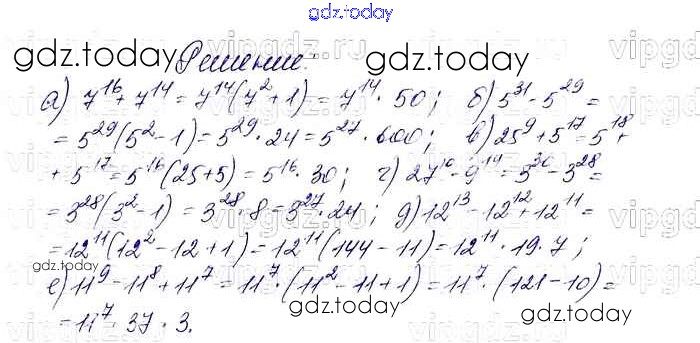 gdz.today
gdz.today Решение: gdz.today
а) 7^16 + 7^14 = 7^14(7^2+1) = 7^14 · 50; б) 5^31 - 5^29 =
= 5^29(5^2-1) = 5^29 · 24 = 5^27 · 600; в) 25^9 + 5^17 = 5^18 +
+ 5^17 = 5^16(25+5) = 5^16 · 30; г) 27^10 - 9^14 = 3^30 - 3^28 =
= 3^28(3^2-1) = 3^28 · 8 = 3^27 · 24; д) 12^13 - 12^12 + 12^11 =
= 12^11(12^2-12+1) = 12^11(144-11) = 12^11 · 19 · 7;
gdz.today gdz.today
е) 11^9 - 11^8 + 11^7 = 11^7 · (11^2-11+1) = 11^7 · (121-10) =
= 11^7 · 37 · 3.
gdz.today